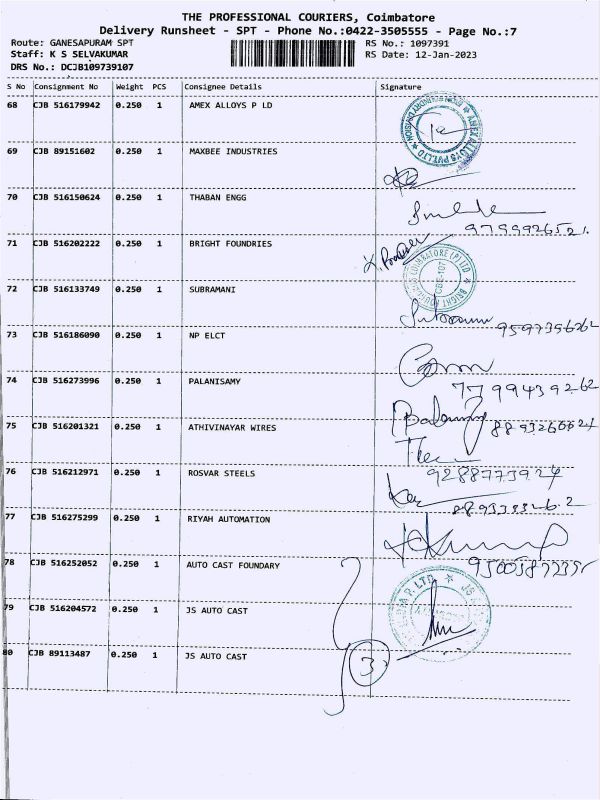 THE PROFESSIONAL COURIERS, Coimbatore
Delivery Runsheet - SPT - Phone No.:0422-3505555 - Page No.:7
Route: GANESAPURAM SPT
Staff: K S SELVAKUMAR
DRS No.: DCJB109739107
RS No.: 1097391
RS Date: 12-Jan-2023
S No Consignment No Weight PCS Consignee Details Signature
68 CJB 516179942 0.250 1 AMEX ALLOYS P LD
69 CJB 89151602 0.250 1 MAXBEE INDUSTRIES
70 CJB 516150624 0.250 1 THABAN ENGG
9799926521
71 CJB 516202222 0.250 1 BRIGHT FOUNDRIES
CBE-107
72 CJB 516133749 0.250 1 SUBRAMANI
73 CJB 516186090 0.250 1 NP ELCT
74 CJB 516273996 0.250 1 PALANISAMY
7799439262
75 CJB 516201321 0.250 1 ATHIVINAYAR WIRES
76 CJB 516212971 0.250 1 ROSVAR STEELS
9288773924
77 CJB 516275299 0.250 1 RIYAH AUTOMATION
78 CJB 516252052 0.250 1 AUTO CAST FOUNDARY
79 CJB 516204572 0.250 1 JS AUTO CAST
80 CJB 89113487 0.250 1 JS AUTO CAST
3